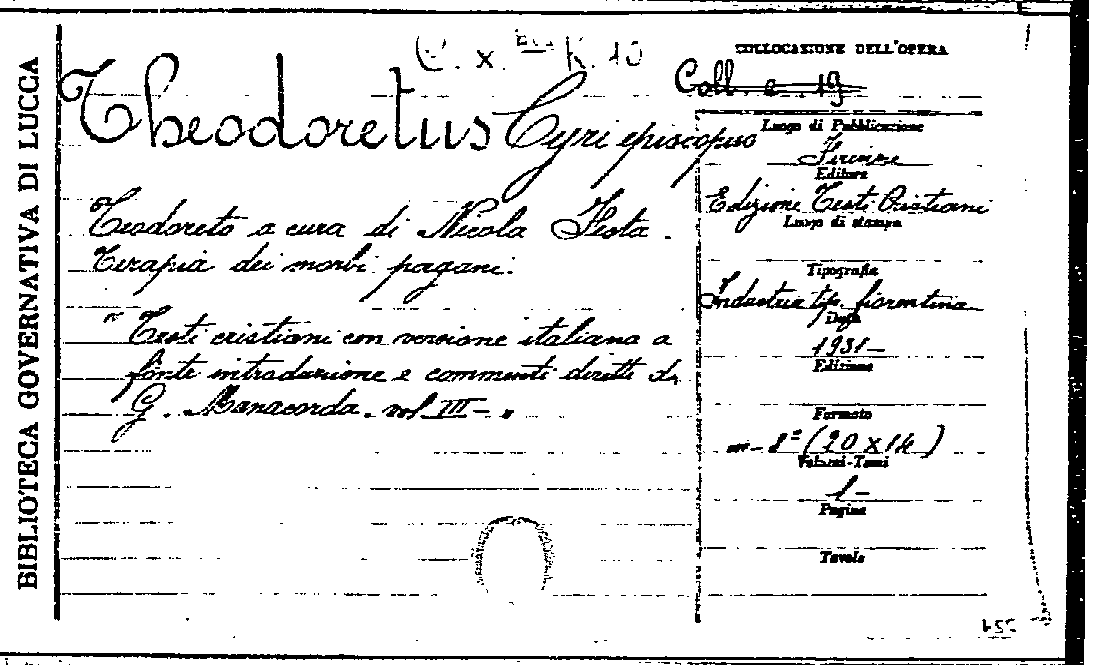 BIBLIOTECA GOVERNATIVA DI LUCCA
C. x. K. 10
COLLOCAZIONE DELL'OPERA
Coll. e. 19
Theodoretus Cyri episcopus
Luogo di Pubblicazione
Firenze
Editore
Edizione Testi Cristiani
Luogo di stampa
Teodoreto a cura di Nicola Festa.
Terapia dei morbi pagani.
Tipografia
Industria tip. fiorentina
Data
1931-
Edizione
" Testi cristiani con versione italiana a
fronte intraduzione e commenti diretti da
G. Manacorda. vol III - "
Formato
8° (20 x 14)
Volumi-Tomi
1-
Pagine
Tavole